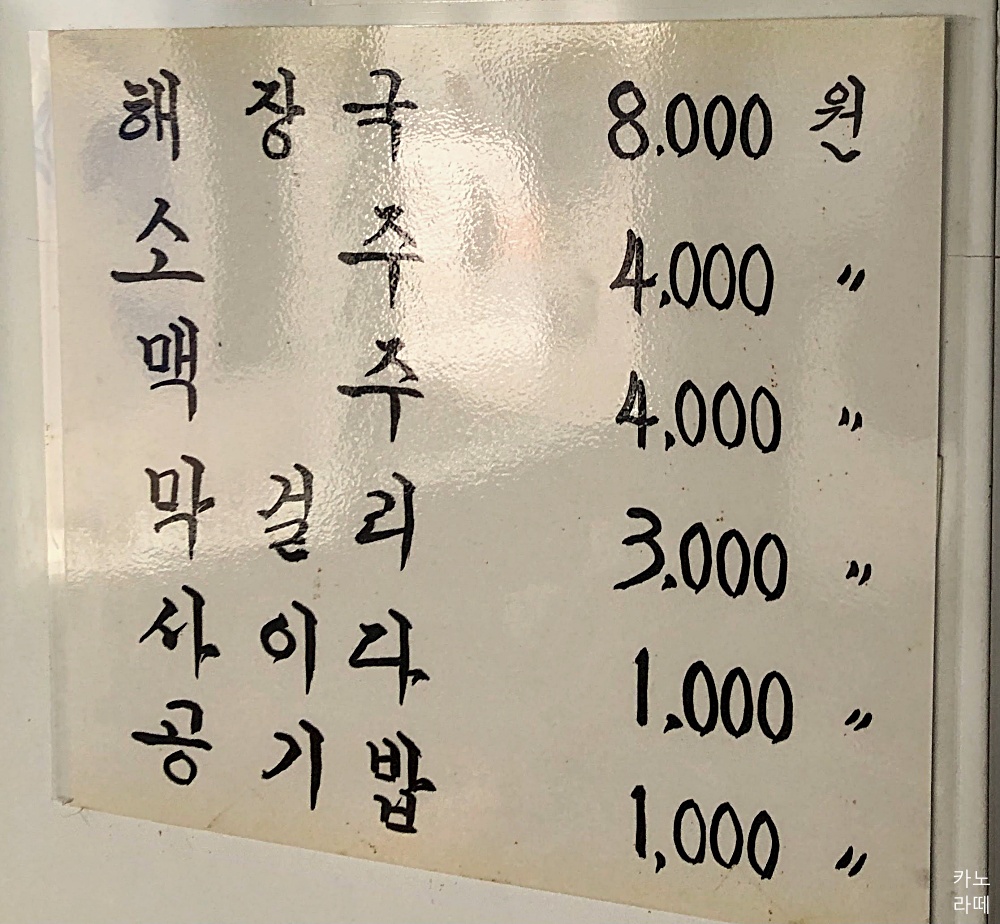 해장국 8.000원
소주 4,000 〃
맥주 4,000 〃
막걸리 3,000 〃
사이다 1,000 〃
공기밥 1,000 〃
카노
라떼